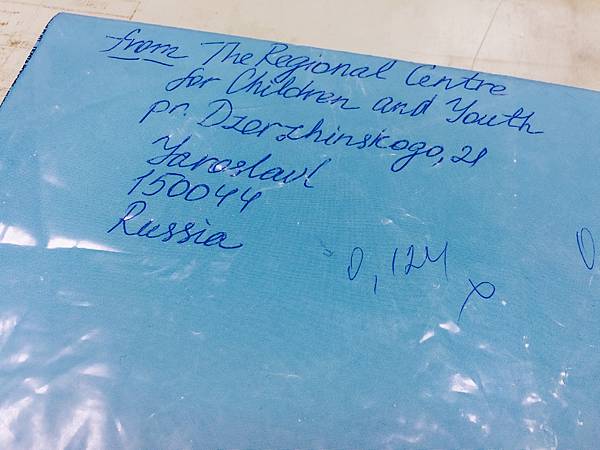 from The Regional Centre
for Children and Youth
pr. Dzerzhinskogo, 21
Yaroslavl
150044
Russia
0,124